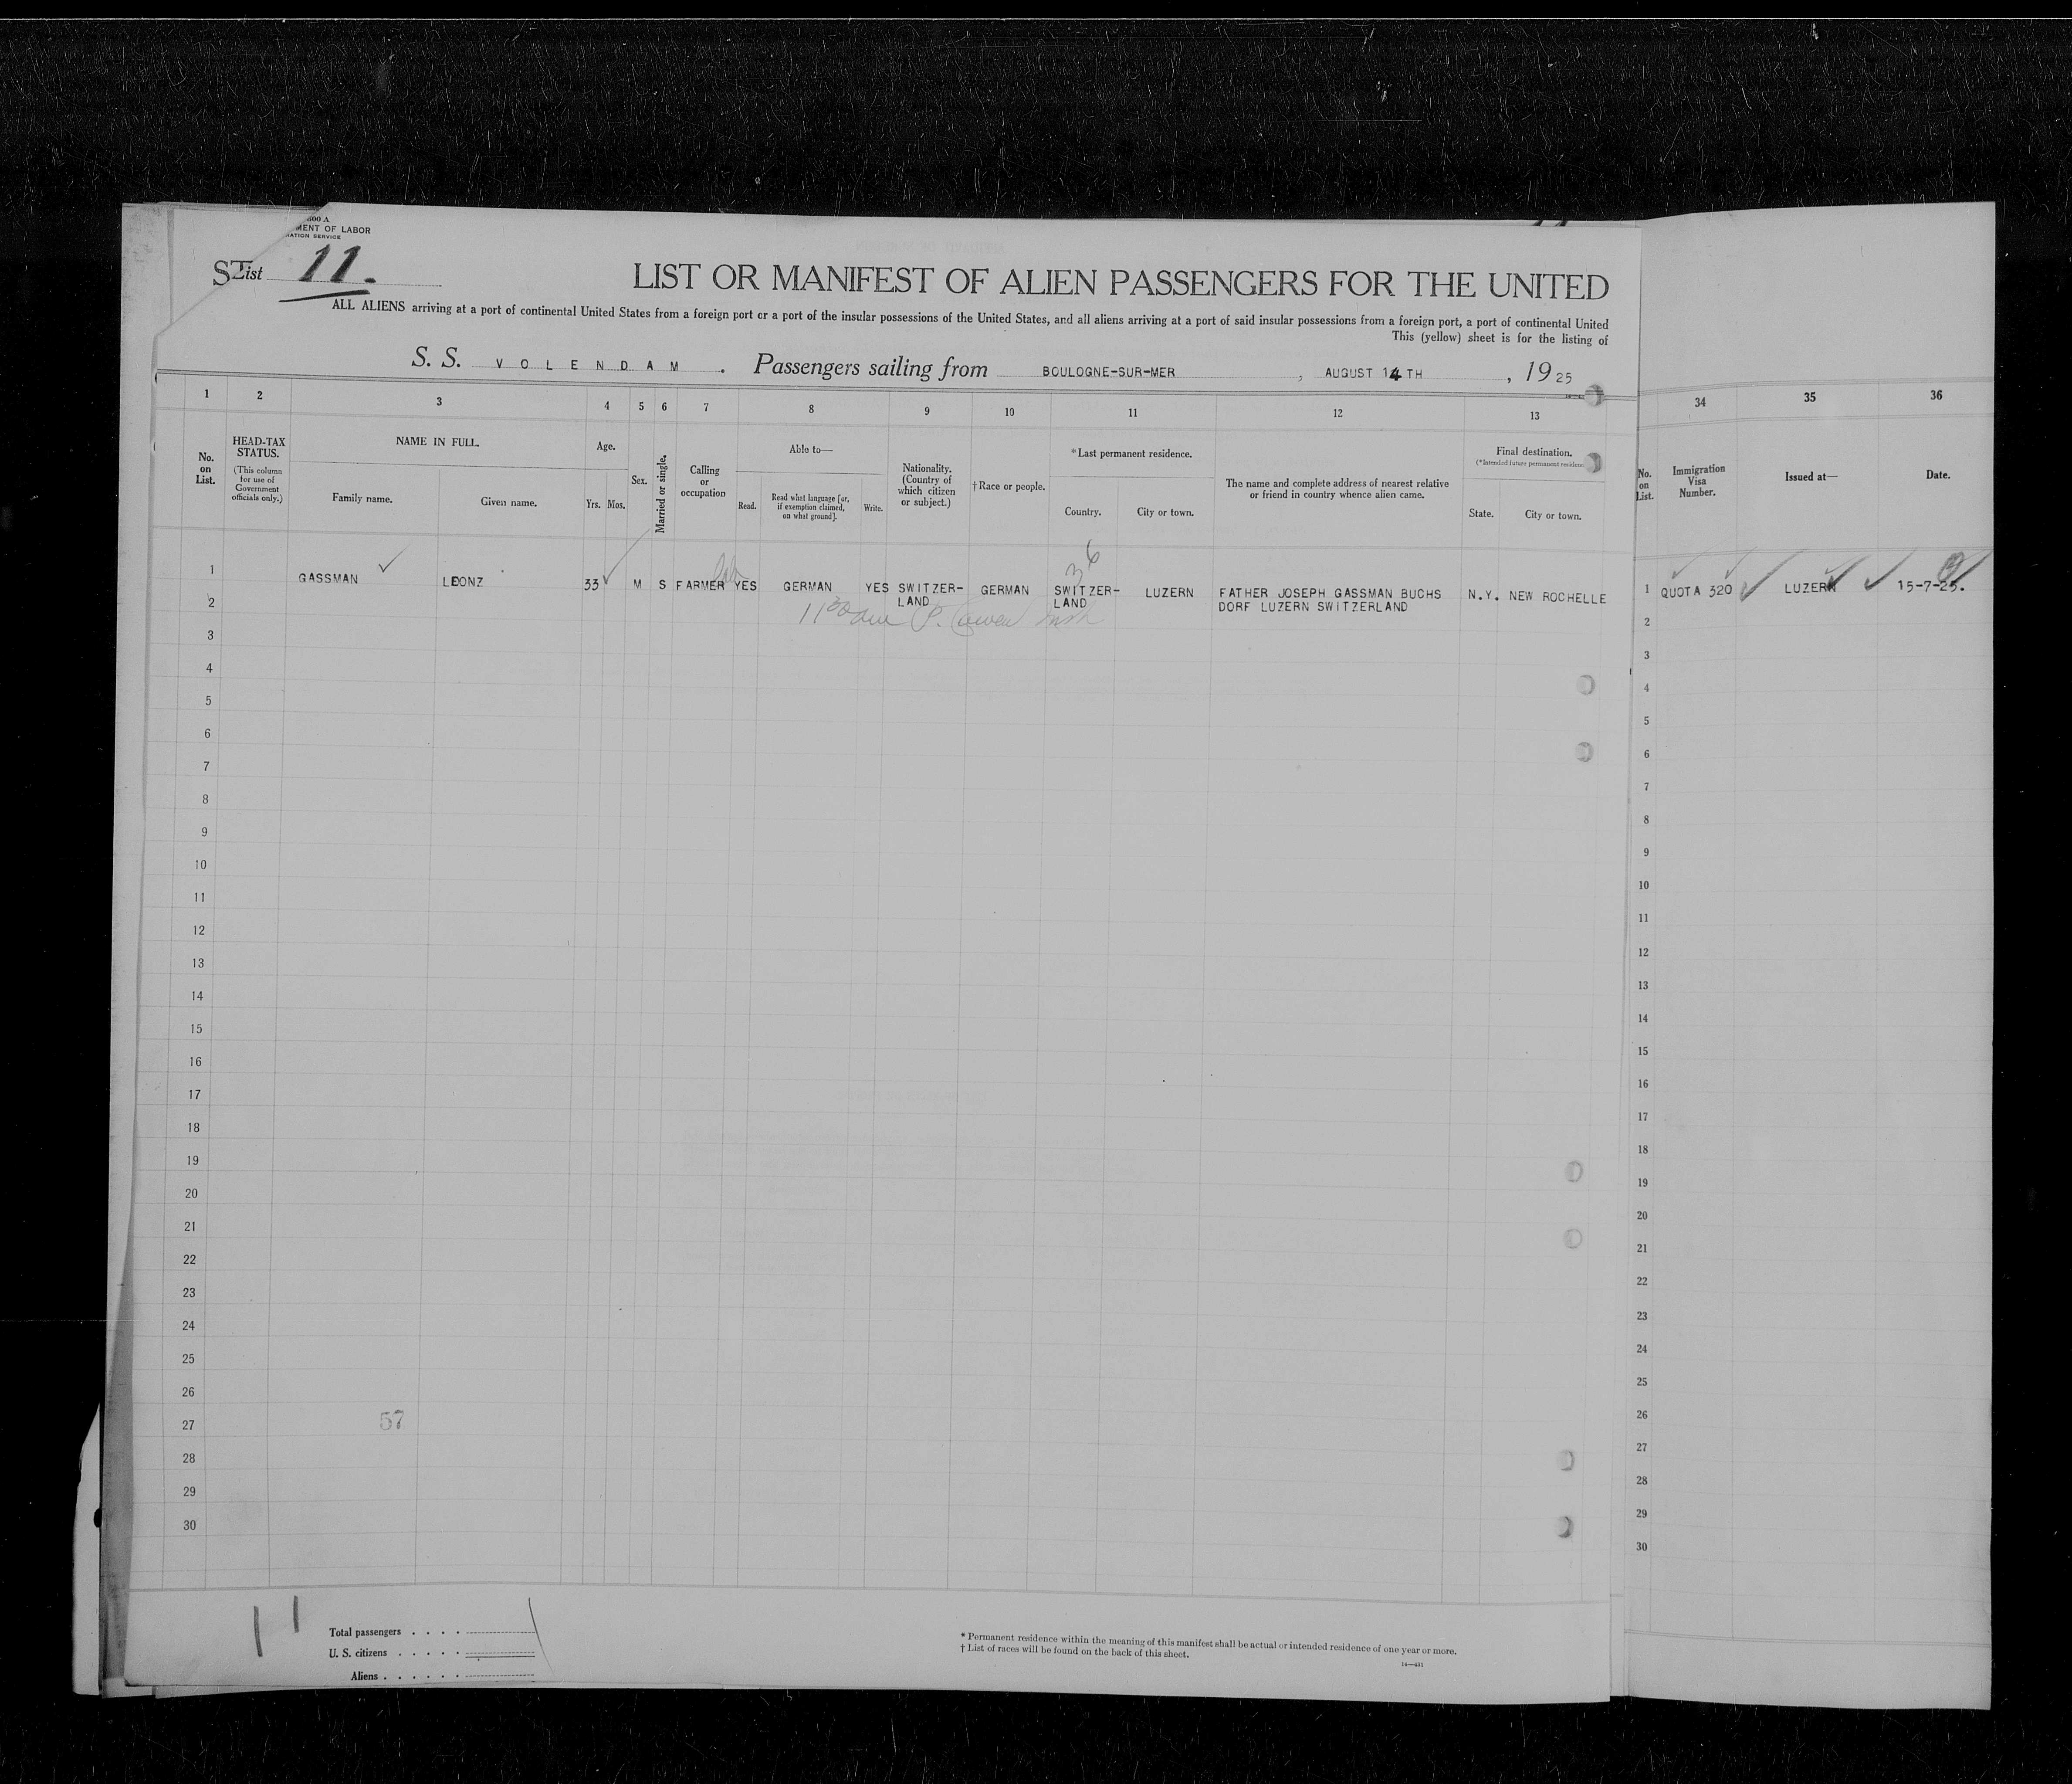 600 A
MENT OF LABOR
RATION SERVICE
List 11.
LIST OR MANIFEST OF ALIEN PASSENGERS FOR THE UNITED
ALL ALIENS arriving at a port of continental United States from a foreign port or a port of the insular possessions of the United States, and all aliens arriving at a port of said insular possessions from a foreign port, a port of continental United
This (yellow) sheet is for the listing of
S. S. VOLENDAM. Passengers sailing from BOULOGNE-SUR-MER, AUGUST 14TH, 1925
1 2 3 4 5 6 7 8 9 10 11 12 13 34 35 36
No. on List.
HEAD-TAX STATUS.
(This column for use of Government officials only.)
NAME IN FULL.
Family name.
Given name.
Age.
Yrs. Mos.
Sex.
Married or single.
Calling or occupation
Able to—
Read.
Read what language [or, if exemption claimed, on what ground].
Write.
Nationality. (Country of which citizen or subject.)
†Race or people.
*Last permanent residence.
Country.
City or town.
The name and complete address of nearest relative or friend in country whence alien came.
Final destination.
(*Intended future permanent residence
State.
City or town.
No. on List.
Immigration Visa Number.
Issued at—
Date.
1 GASSMAN LEONZ 33 M S FARMER YES GERMAN YES SWITZER- GERMAN SWITZER- LUZERN FATHER JOSEPH GASSMAN BUCHS N.Y. NEW ROCHELLE 1 QUOTA 320 LUZERN 15-7-25.
2 LAND LAND DORF LUZERN SWITZERLAND 2
3 3
4 4
5 5
6 6
7 7
8 8
9 9
10 10
11 11
12 12
13 13
14 14
15 15
16 16
17 17
18 18
19 19
20 20
21 21
22 22
23 23
24 24
25 25
26 26
27 57 27
28 28
29 29
30 30
Total passengers . . . .
U. S. citizens . . . . .
Aliens . . . . . .
* Permanent residence within the meaning of this manifest shall be actual or intended residence of one year or more.
† List of races will be found on the back of this sheet.